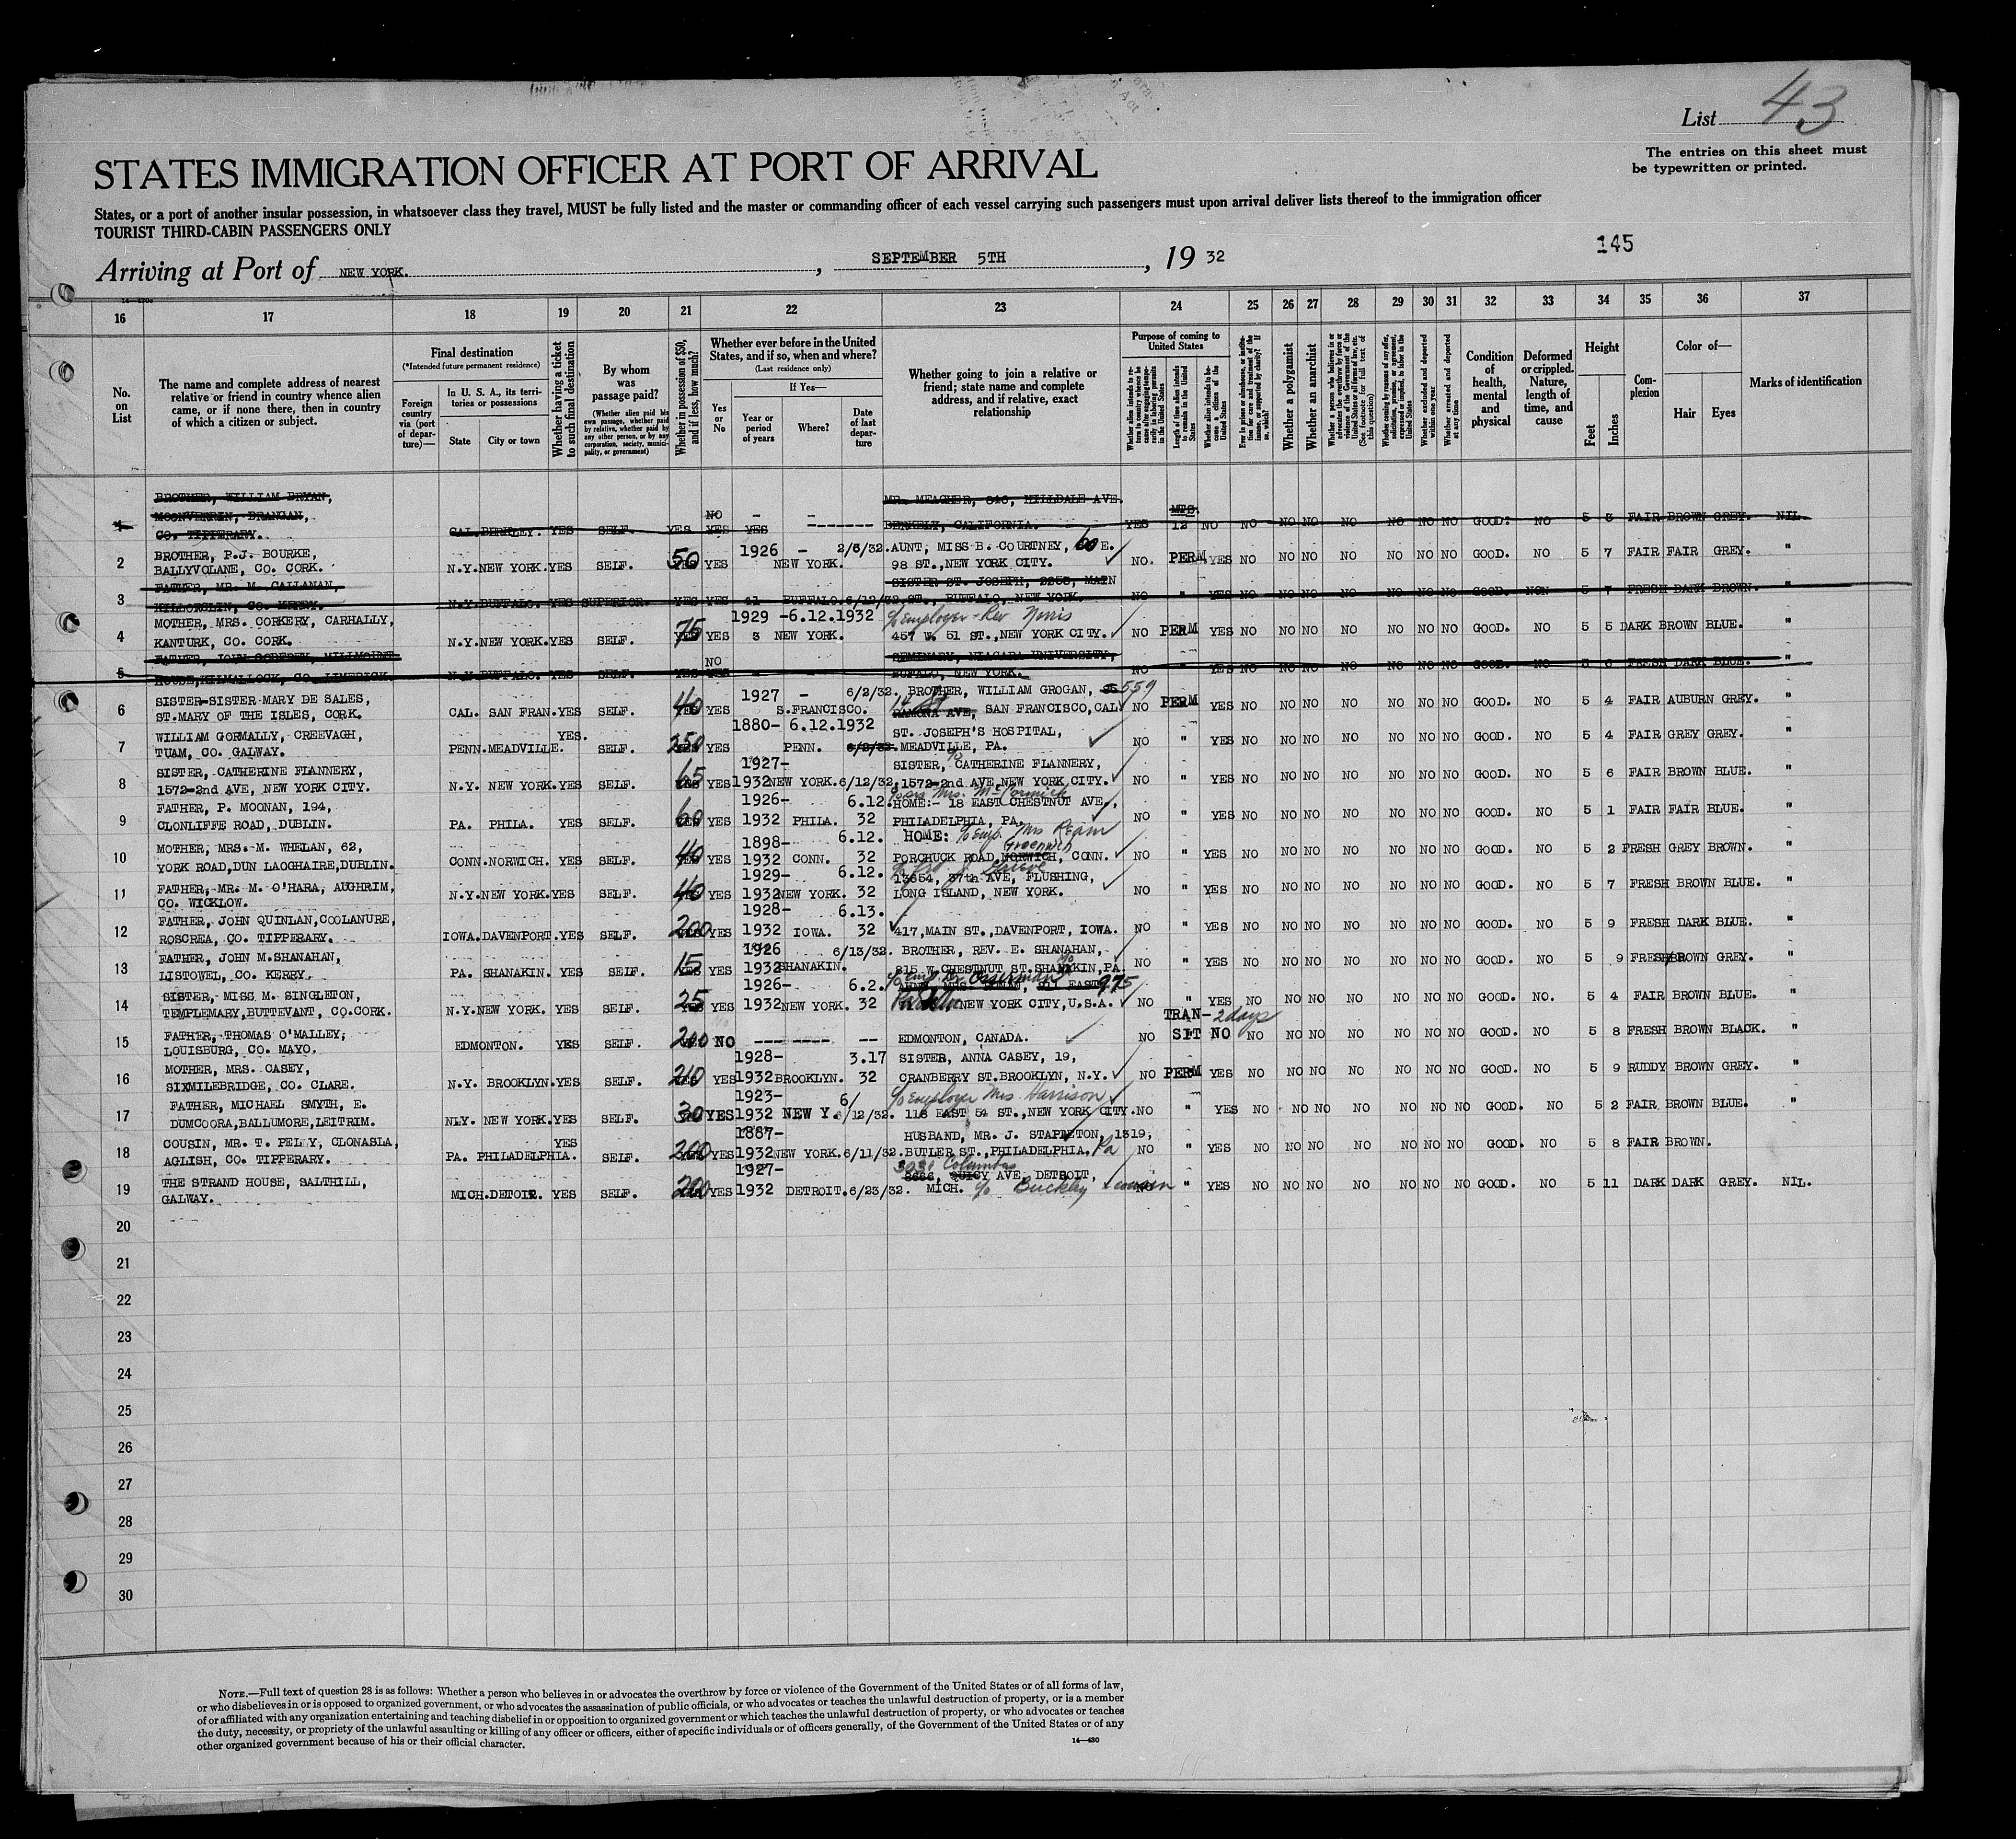 List 43
The entries on this sheet must
be typewritten or printed.
STATES IMMIGRATION OFFICER AT PORT OF ARRIVAL
States, or a port of another insular possession, in whatsoever class they travel, MUST be fully listed and the master or commanding officer of each vessel carrying such passengers must upon arrival deliver lists thereof to the immigration officer
TOURIST THIRD-CABIN PASSENGERS ONLY
145
Arriving at Port of NEW YORK. , SEPTEMBER 5TH , 19 32
16 17 18 19 20 21 22 23 24 25 26 27 28 29 30 31 32 33 34 35 36 37
No. on List
The name and complete address of nearest relative or friend in country whence alien came, or if none there, then in country of which a citizen or subject.
Final destination
(*Intended future permanent residence)
Foreign country via (port of departure)—
In U. S. A., its territories or possessions
State
City or town
Whether having a ticket to such final destination
By whom was passage paid?
(Whether alien paid his own passage, whether paid by relative, whether paid by any other person, or by any corporation, society, municipality, or government)
Whether in possession of $50, and if less, how much?
Whether ever before in the United States, and if so, when and where?
(Last residence only)
Yes or No
If Yes—
Year or period of years
Where?
Date of last departure
Whether going to join a relative or friend; state name and complete address, and if relative, exact relationship
Purpose of coming to United States
Whether alien intends to return to country whence he came after engaging temporarily in laboring pursuits in the United States
Length of time alien intends to remain in the United States
Whether alien intends to become a citizen of the United States
Ever in prison or almshouse, or institution for care and treatment of the insane, or supported by charity? If so, which?
Whether a polygamist
Whether an anarchist
Whether a person who believes in or advocates the overthrow by force or violence of the Government of the United States or all forms of law, etc. (See footnote for full text of this question)
Whether coming by reason of any offer, solicitation, promise, or agreement, expressed or implied, to labor in the United States
Whether excluded and deported within one year
Whether arrested and deported at any time
Condition of health, mental and physical
Deformed or crippled. Nature, length of time, and cause
Height
Feet
Inches
Complexion
Color of—
Hair
Eyes
Marks of identification
BROTHER, WILLIAM BRYAN, MR. MEAGHER, HILLDALE AVE.
NO - - MTS.
1 CAL. BERKLEY. YES SELF. YES YES YES ------- BERKELY, CALIFORNIA. YES 12 NO NO NO NO NO NO NO NO GOOD. NO 5 3 FAIR BROWN GREY. NIL
CO. TIPPERARY.
BROTHER, P.J. BOURKE, 1926 - 2/5/32. AUNT, MISS B. COURTNEY, 60 E.
2 BALLYVOLANE, CO. CORK. N.Y. NEW YORK. YES SELF. 50 YES NEW YORK. 98 ST., NEW YORK CITY. NO. PERM YES NO NO NO NO NO NO NO GOOD. NO 5 7 FAIR FAIR GREY. "
FATHER, MR. M. CALLANAN, SISTER ST. JOSEPH, 2253, MAIN
3 KILLORGLIN, CO. KERRY. N.Y. BUFFALO. YES SUPERIOR. YES YES 11 BUFFALO. 6/12/32 ST., BUFFALO, NEW YORK. NO " YES NO NO NO NO NO NO NO GOOD. NON 5 7 FRESH DARK BROWN. "
MOTHER, MRS. CORKERY, CARHALLY, 1929 - 6.12.1932 c/o Employer - Rev Norris
4 KANTURK, CO. CORK. N.Y. NEW YORK. YES SELF. 75 YES 3 NEW YORK. 457 W. 51 ST., NEW YORK CITY. NO PERM YES NO NO NO NO NO NO NO GOOD. NO 5 5 DARK BROWN BLUE. "
FATHER, JOHN GODFREY, MILLMOUNT NO SEMINARY, NIAGARA UNIVERSITY,
5 HOUSE, KILMALLOCK, CO. LIMERICK. N.Y. BUFFALO. YES SELF. YES - - BUFALO, NEW YORK. NO " YES NO NO NO NO NO NO NO GOOD. NO 5 6 FRESH DARK BLUE. "
SISTER-SISTER MARY DE SALES, 1927 - 6/2/32. BROTHER, WILLIAM GROGAN, 559
6 ST. MARY OF THE ISLES, CORK. CAL. SAN FRAN. YES SELF. 40 YES S. FRANCISCO. 14 St RAMONA AVE, SAN FRANCISCO, CAL NO PERM YES NO NO NO NO NO NO NO GOOD. NO 5 4 FAIR AUBURN GREY. "
WILLIAM GORMALLY, CREEVAGH, YES. 1880- 6.12.1932 ST. JOSEPH'S HOSPITAL,
7 TUAM, CO. GALWAY. PENN. MEADVILLE. SELF. 250 YES PENN. 6/2/32. MEADVILLE, PA. NO " YES NO NO NO NO NO NO NO GOOD. NO 5 4 FAIR GREY GREY. "
SISTER, CATHERINE FLANNERY, 1927- SISTER, CATHERINE FLANNERY,
8 1572-2nd AVE, NEW YORK CITY. N.Y. NEW YORK. YES SELF. 65 YES 1932 NEW YORK. 6/12/32. 1572-2nd AVE, NEW YORK CITY. NO " YES NO NO NO NO NO NO NO GOOD. NO 5 6 FAIR BROWN BLUE. "
FATHER, P. MOONAN, 194, 1926- 6.12. Mrs. McCormick HOME:- 18 EAST CHESTNUT AVE.,
9 CLONLIFFE ROAD, DUBLIN. PA. PHILA. YES SELF. 60 YES 1932 PHILA. 32 PHILADELPHIA, PA. NO " YES NO NO NO NO NO NO NO GOOD. NO 5 1 FAIR FAIR BLUE. "
MOTHER, MRS. M. WHELAN, 62, 1898- 6.12. HOME: c/o Emp. Mrs Ream
10 YORK ROAD, DUN LAOGHAIRE, DUBLIN. CONN. NORWICH. YES SELF. 40 YES 1932 CONN. 32 PORCHUCK ROAD, NORWICH, Greenwich CONN. NO " YES NO NO NO NO NO NO NO GOOD. NO 5 2 FRESH GREY BROWN. "
FATHER, MR. M. O'HARA, AUGHRIM, 1929- 6.12. 13654, 37th AVE, FLUSHING,
11 CO. WICKLOW. N.Y. NEW YORK. YES SELF. 40 YES 1932 NEW YORK. 32 LONG ISLAND, NEW YORK. NO " YES NO NO NO NO NO NO NO GOOD. NO 5 7 FRESH BROWN BLUE. "
FATHER, JOHN QUINLAN, COOLANURE, 1928- 6.13.
12 ROSCREA, CO. TIPPERARY. IOWA. DAVENPORT. YES SELF. 200 YES 1932 IOWA. 32 417, MAIN ST., DAVENPORT, IOWA. NO " YES NO NO NO NO NO NO NO GOOD. NO 5 9 FRESH DARK BLUE. "
FATHER, JOHN M. SHANAHAN, 1926 6/13/32. BROTHER, REV. E. SHANAHAN,
13 LISTOWEL, CO. KERRY. PA. SHANAKIN. YES SELF. 15 YES 1932 SHANAKIN. 815 W. CHESTNUT ST. SHAMOKIN, PA. NO " YES NO NO NO NO NO NO NO GOOD. NO 5 9 FRESH BROWN GREY. "
SISTER, MISS M. SINGLETON, 1926- 6.2. 975
14 TEMPLEMARY, BUTTEVANT, CO. CORK. N.Y. NEW YORK. YES SELF. 25 YES 1932 NEW YORK. 32 Park Av NEW YORK CITY, U.S.A. NO " YES NO NO NO NO NO NO NO GOOD. NO. 5 4 FAIR BROWN BLUE. "
FATHER, THOMAS O'MALLEY, TRAN- 2 days
15 LOUISBURG, CO. MAYO. EDMONTON. YES SELF. 200 NO --- ---- -- EDMONTON, CANADA. NO SIT NO NO NO NO NO NO NO NO GOOD. NO 5 8 FRESH BROWN BLACK. "
MOTHER, MRS. CASEY, 1928- 3.17 SISTER, ANNA CASEY, 19,
16 SIXMILEBRIDGE, CO. CLARE. N.Y. BROOKLYN. YES SELF. 210 YES 1932 BROOKLYN. 32 CRANBERRY ST. BROOKLYN, N.Y. NO PERM YES NO NO NO NO NO NO NO GOOD. NO 5 9 RUDDY BROWN GREY. "
FATHER, MICHAEL SMYTH, E. 1923- 6/ c/o Employer Mrs. Harrison
17 DUMCOORA, BALLUMORE, LEITRIM. NLY. NEW YORK. YES SELF. 30 YES 1932 NEW Y. 6/12/32. 118 EAST 54 ST., NEW YORK CITY. NO " YES NO NO NO NO NO NO NO GOOD. NO 5 2 FAIR BROWN BLUE. "
COUSIN, MR. T. PELLY, CLONASLA, YES 1887- HUSBAND, MR. J. STAPLETON, 1319,
18 AGLISH, CO. TIPPERARY. PA. PHILADELPHIA. SELF. 200 YES 1932 NEW YORK. 6/11/32. BUTLER ST., PHILADELPHIA. Pa NO " YES NO NO NO NO NO NO NO GOOD. NO 5 8 FAIR BROWN.
THE STRAND HOUSE, SALTHILL, 1927- 3031 Columbus 8666, QUICY AVE, DETROIT,
19 GALWAY. MICH. DETOIT. YES SELF. 200 YES 1932 DETROIT. 6/23/32. MICH. c/o Buckley cousin NO " YES NO NO NO NO NO NO NO GOOD. NO 5 11 DARK DARK GREY. NIL.
20
21
22
23
24
25
26
27
28
29
30
NOTE.—Full text of question 28 is as follows: Whether a person who believes in or advocates the overthrow by force or violence of the Government of the United States or of all forms of law,
or who disbelieves in or is opposed to organized government, or who advocates the assassination of public officials, or who advocates or teaches the unlawful destruction of property, or is a member
of or affiliated with any organization entertaining and teaching disbelief in or opposition to organized government or which teaches the unlawful destruction of property, or who advocates or teaches
the duty, necessity, or propriety of the unlawful assaulting or killing of any officer or officers, either of specific individuals or of officers generally, of the Government of the United States or of any
other organized government because of his or their official character.
14—430